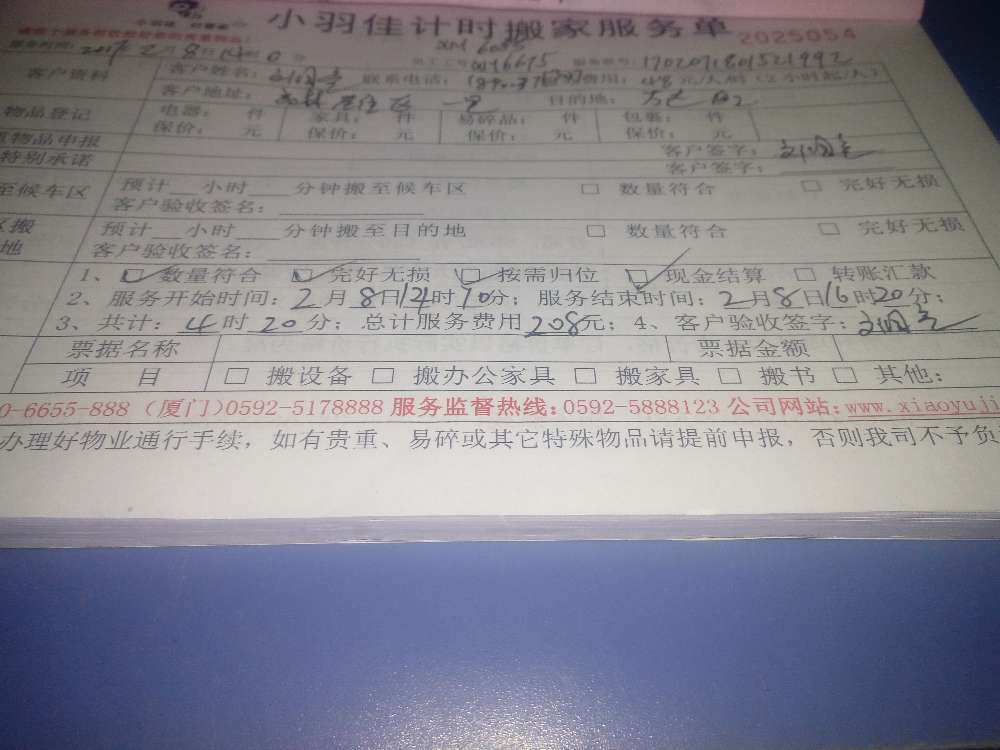 小羽佳计时搬家服务单 2025054
2017年2月8日14时0分
客户资料 客户姓名: 联系电话: 费用: 48元/人/时(2小时起/人)
客户地址: 目的地:
物品登记 电器: 件 家具: 件 易碎品: 件 包裹: 件
保价: 元 保价: 元 保价: 元 保价: 元
物品申报 客户签字:
特别承诺 客户签字:
至候车区 预计 小时 分钟搬至候车区 □ 数量符合 □ 完好无损
客户验收签名:
搬 预计 小时 分钟搬至目的地 □ 数量符合 □ 完好无损
地 客户验收签名:
1、☑ 数量符合 ☑ 完好无损 ☑ 按需归位 ☑ 现金结算 □ 转账汇款
2、服务开始时间:2月8日14时10分; 服务结束时间:2月8日16时20分;
3、共计:4时20分; 总计服务费用208元; 4、客户验收签字:
票据名称 票据金额
项 目 □ 搬设备 □ 搬办公家具 □ 搬家具 □ 搬书 □ 其他:
0-6655-888 (厦门)0592-5178888 服务监督热线:0592-5888123 公司网站:www.xiaoyuji
办理好物业通行手续,如有贵重、易碎或其它特殊物品请提前申报,否则我司不予负